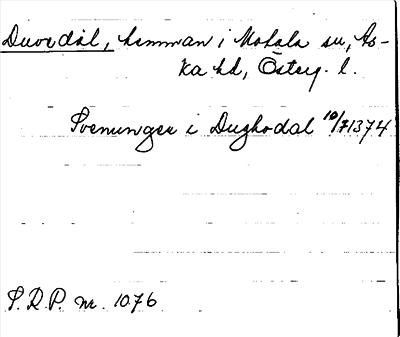 Duvedal, hemman i Motala sn, As-
ka hd, Österg. l.
Svenungee i Dughodal 10/7 1374
S.R.P. nr. 1076